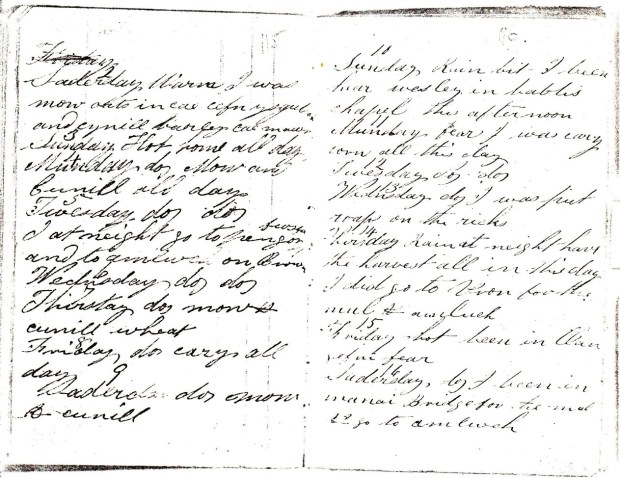 115
Friday
Saderday Warm I was
mow oats in cae cefn
and cunill barley cae mawr
Sunday Hot rome all day
Munday do, Mow and
Cunill all day
5
Tuesday do, do,
I at neight go to
and to amlwch on
Wednesday do, do,
7
Thirstay do, mow &
cunill wheat
8
Friday do, cary all
day 9
Saderda do, mow
& cunill
10
Sunday Rain bit I been
hear wesley in bablis
chapel this afternoon
Munday fear I was cary
corn all this day
12
Tuesday do, do,
13
Wednsday do, I was put
roap on the ricks
14
Thirsday Rain at neight have
the harvest all in this day
I did go to Vron for the
mul & amluch
15
Friday hot been in Llan
fear
16
Saderday do, I been in
manai Bridge for the mul
& go to amlwch